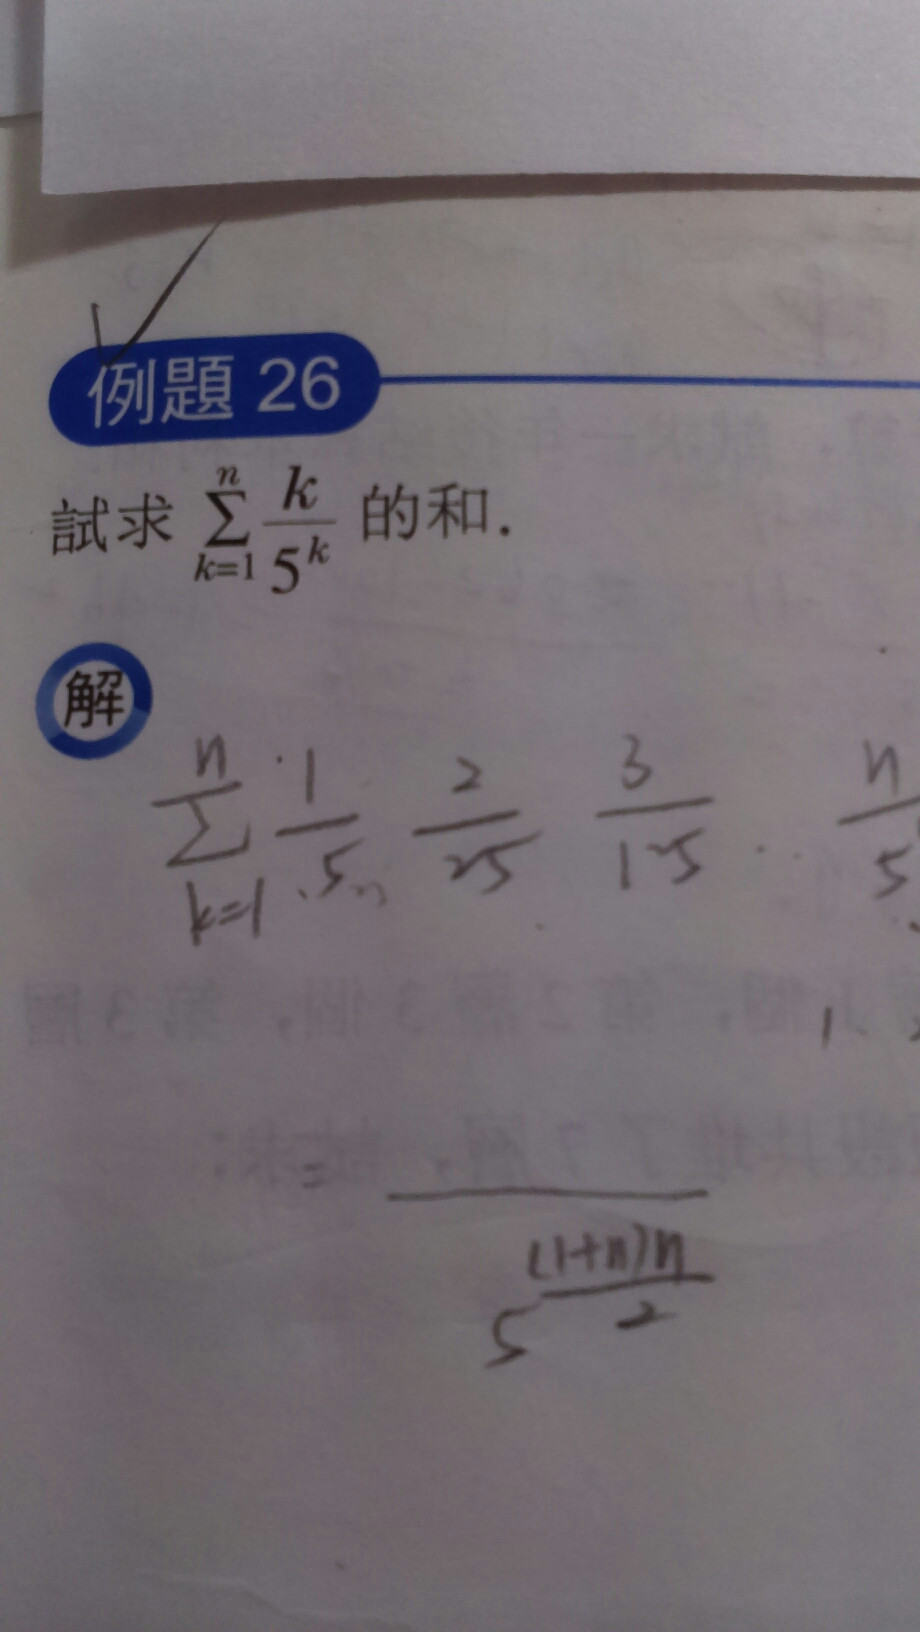 例題 26
試求 $\sum_{k=1}^{n} \frac{k}{5^k}$ 的和.
解
$\sum_{k=1}^{n} \frac{1}{5} \quad \frac{2}{25} \quad \frac{3}{125} \cdots \frac{n}{5}$
$= \frac{}{5^{\frac{(1+n)n}{2}}}$